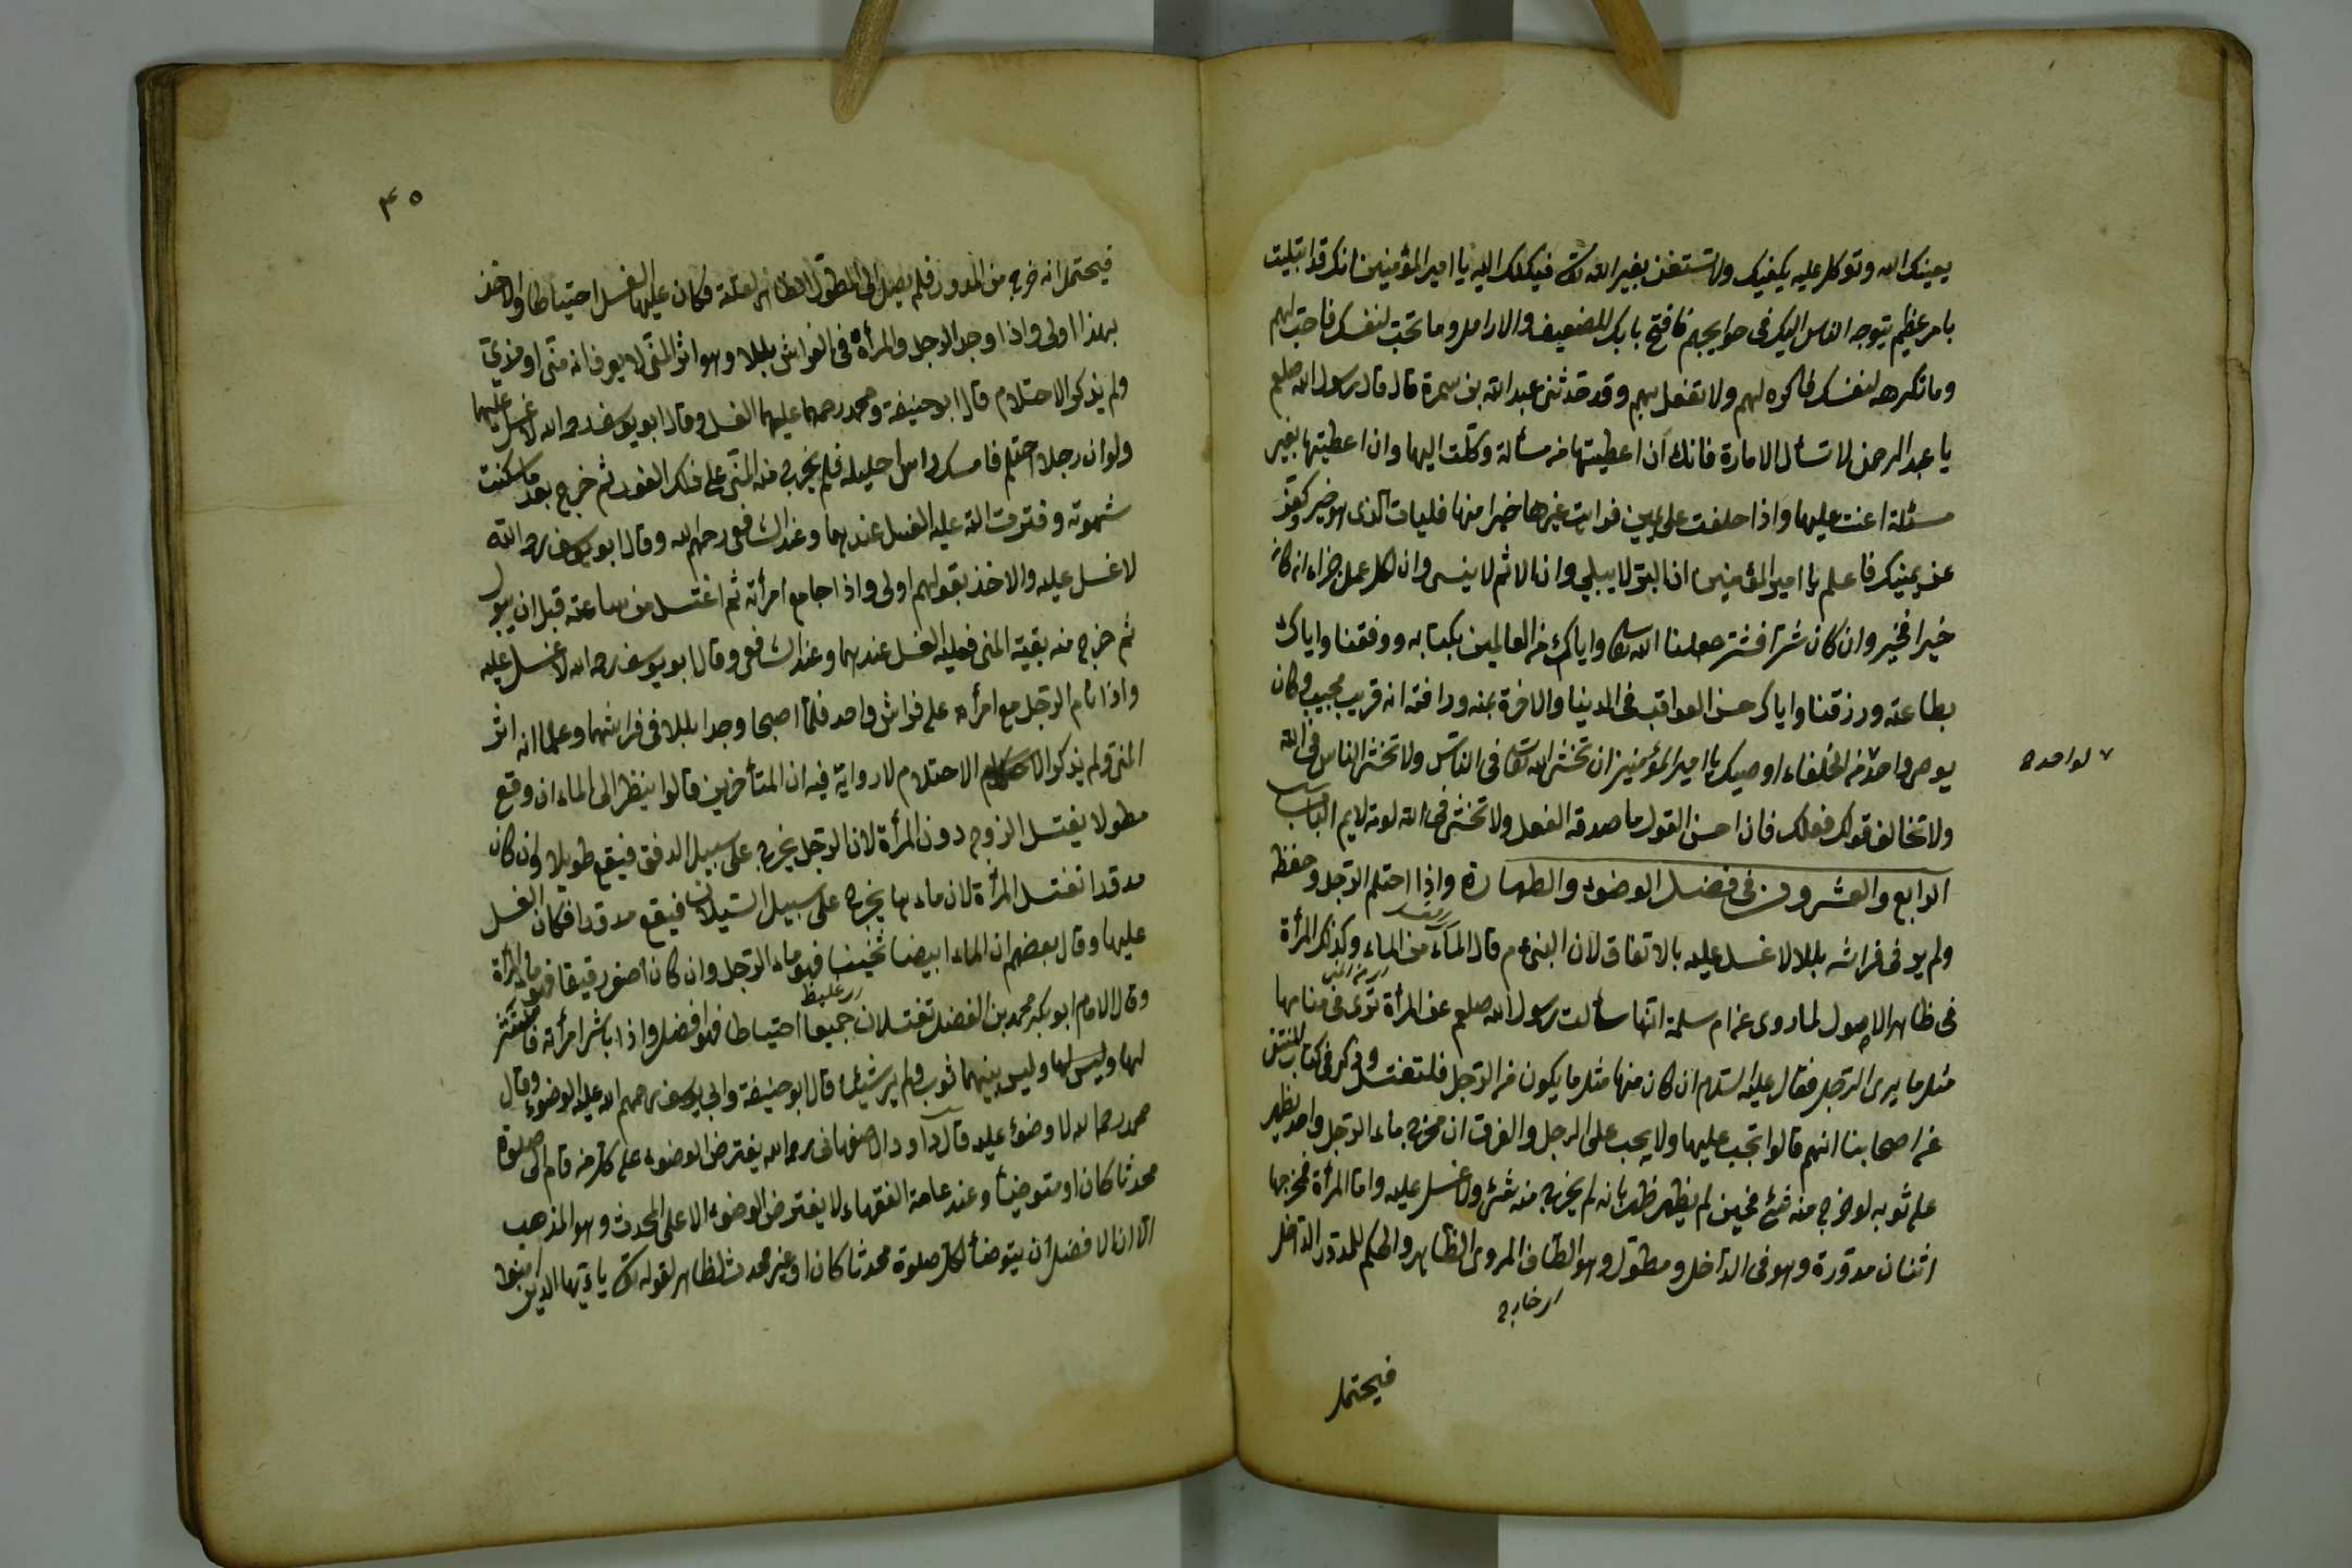 يعينك الله وتوكل عليه يكفيك ولا تستغن بغير الله تعالى فيكلك اليه يا امير المؤمنين انك قد ابتليت
بامر عظيم يتوجه الناس اليك فى حوايجهم فافتح بابك للضعيف والارامل وما تحب لنفسك فاحب لهم
وما تكره لنفسك فاكره لهم ولا تفعل بهم وقد حدثنى عبد الله بن سمرة قال قال رسول الله صلعم
يا عبد الرحمن لا تسأل الامارة فانك ان اعطيتها من مسألة وكلت اليها وان اعطيتها بغير
مسئلة اعنت عليها واذا حلفت على يمين فرايت غيرها خيرا منها فليات الذى هو خير وكفر
عن يمينك فاعلم يا امير المؤمنين ان البر لا يبلى وان الاثم لا ينسى وان لكل عمل جزاء ان كان
خيرا فخير وان كان شرا فشر جعلنا الله تعالى واياك من العالمين بكتابه ووفقنا واياك
بطاعته ورزقنا واياك حسن العواقب فى الدنيا والاخرة بمنه ورافته انه قريب مجيب وكان
يوصى واحد من الخلفاء اوصيك يا امير المؤمنين ان تخشى الله تعالى فى الناس ولا تخشى الناس فى الله
لواحد
ولا تخالف قولك فعلك فان احسن القول ما صدقه الفعل ولا تخش فى الله لومة لايم الباب
الرابع والعشرون فى فضل الوضوء والطهارة واذا احتلم الرجل وحفظ
ولم ير فى فراشه بللا لا غسل عليه بالاتفاق لان النبى عم قال الماء من الماء وكذلك المرأة
فى ظاهر الاصول لما روى عن ام سلمة انها سألت رسول الله صلعم عن المرأة ترى فى منامها
مثل ما يرى الرجل فقال عليه السلام ان كان منها مثل ما يكون من الرجل فلتغتسل وذكر فى كتاب المنتقى
عن اصحابنا انهم قالوا تجب عليها ولا يجب على الرجل والفرق ان مخرج ماء الرجل واحد يظهر
على ثوبه لو خرج منه شئ فحين لم يظهر ظهر بانه لم يخرج منه شئ ولا غسل عليه واما المرأة فمخرجها
اثنان مدورة وهو فى الداخل ومطول وهو الظاهر المروى الظاهر والحكم للمدور الداخل
خارج
فيحتمل
٤٥
فيحتمل انه خرج من المدور فلم يصل الى المطول الظاهر لعلة فكان عليها الغسل احتياطا والاخذ
بهذا اولى واذا وجد الرجل والمرأة فى الفراش بللا وهو اثر المنى لا يعرف انه منى او مذى
ولم يذكر الاحتلام قال ابو حنيفة ومحمد رحمهما عليهما الغسل وقال ابو يوسف رحمه الله لا غسل عليهما
ولو ان رجلا احتلم فامسك راس احليله فلم يخرج منه المنى على ذلك الفور ثم خرج بعد ما سكنت
شهوته وفترت الة عليه الغسل عندهما وعند الشافعى رحمهم الله وقال ابو يوسف رحمه الله
لا غسل عليه والاخذ بقولهم اولى واذا جامع امرأته ثم اغتسل من ساعته قبل ان يبول
ثم خرج منه بقية المنى فعليه الغسل عندهما وعند الشافعى وقال ابو يوسف رحمه الله لا غسل عليه
واذا نام الرجل مع امرأه على فراش واحد فلما اصبحا وجدا بللا فى فراشهما وعلما انه اثر
المنى ولم يذكرا الاحتلام لا رواية فيه ان المتأخرين قالوا ينظر الى الماء ان وقع
مطولا يغتسل الزوج دون المرأة لان الرجل يخرج على سبيل الدفق فيقع طويلا وان كان
مدورا تغتسل المرأة لان ماءها يخرج على سبيل السيلان فيقع مدورا فكان الغسل
عليها وقال بعضهم ان الماء ابيضا ثخينا فهو ماء الرجل وان كان اصفر رقيقا فهو ماء المرأة
غليظ
وقال الامام ابو بكر محمد بن الفضل تغتسلان جميعا احتياطا فهو افضل واذا باشر امرأته فانتشر
لها وليس بينهما ثوب ولم ير شيئا قال ابو حنيفة وابى يوسف رحمهم الله عليه الوضوء وقال
محمد رحمه الله لا وضوء عليه قال داود الاصفهانى رحمه الله يفترض الوضوء على كل من قام الى صلوة
محدثا كان او متوضيا وعند عامة الفقهاء لا يفترض الوضوء الا على المحدث وهو المذهب
الا ان الافضل ان يتوضأ لكل صلوة محدثا كان او غير محدث لظاهر لقوله تعالى يا ايها الذين امنوا